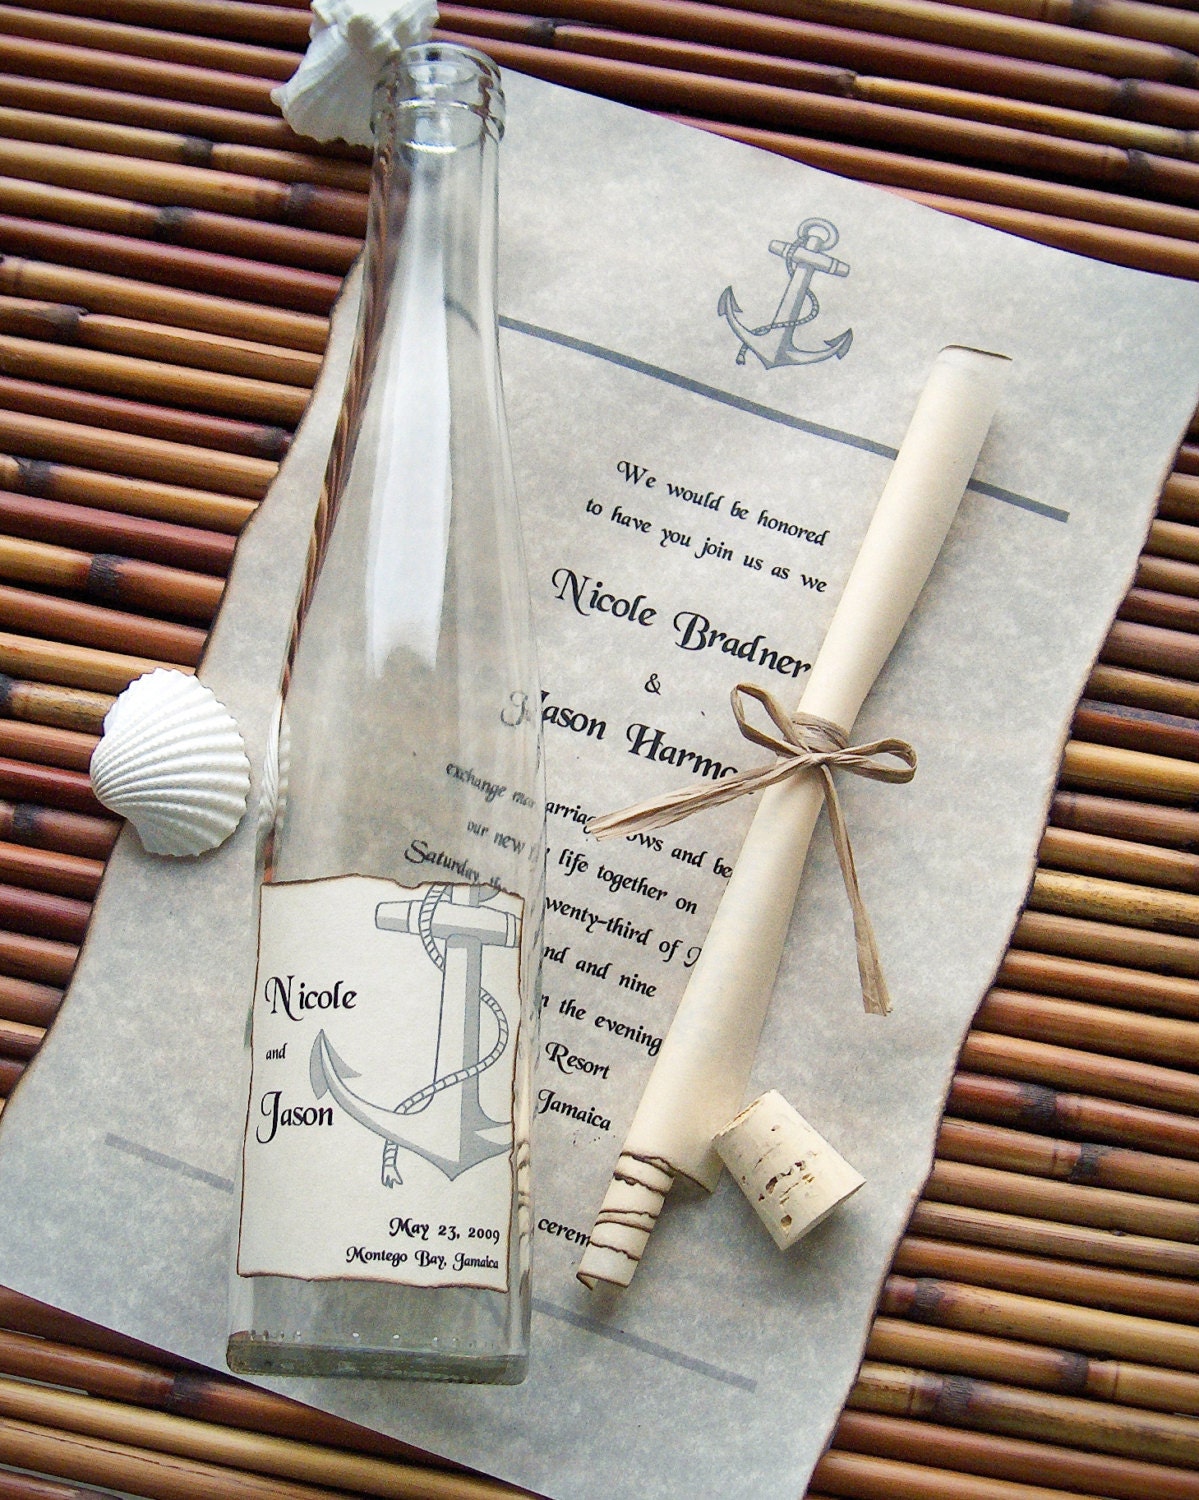 We would be honored
to have you join us as we
Nicole Bradner
&
Jason Harmo
exchange marriage vows and be
our new life together on
Saturday, the twenty-third of
nd and nine
in the evening
Resort
Jamaica
cerem
Nicole
and
Jason
May 23, 2009
Montego Bay, Jamaica